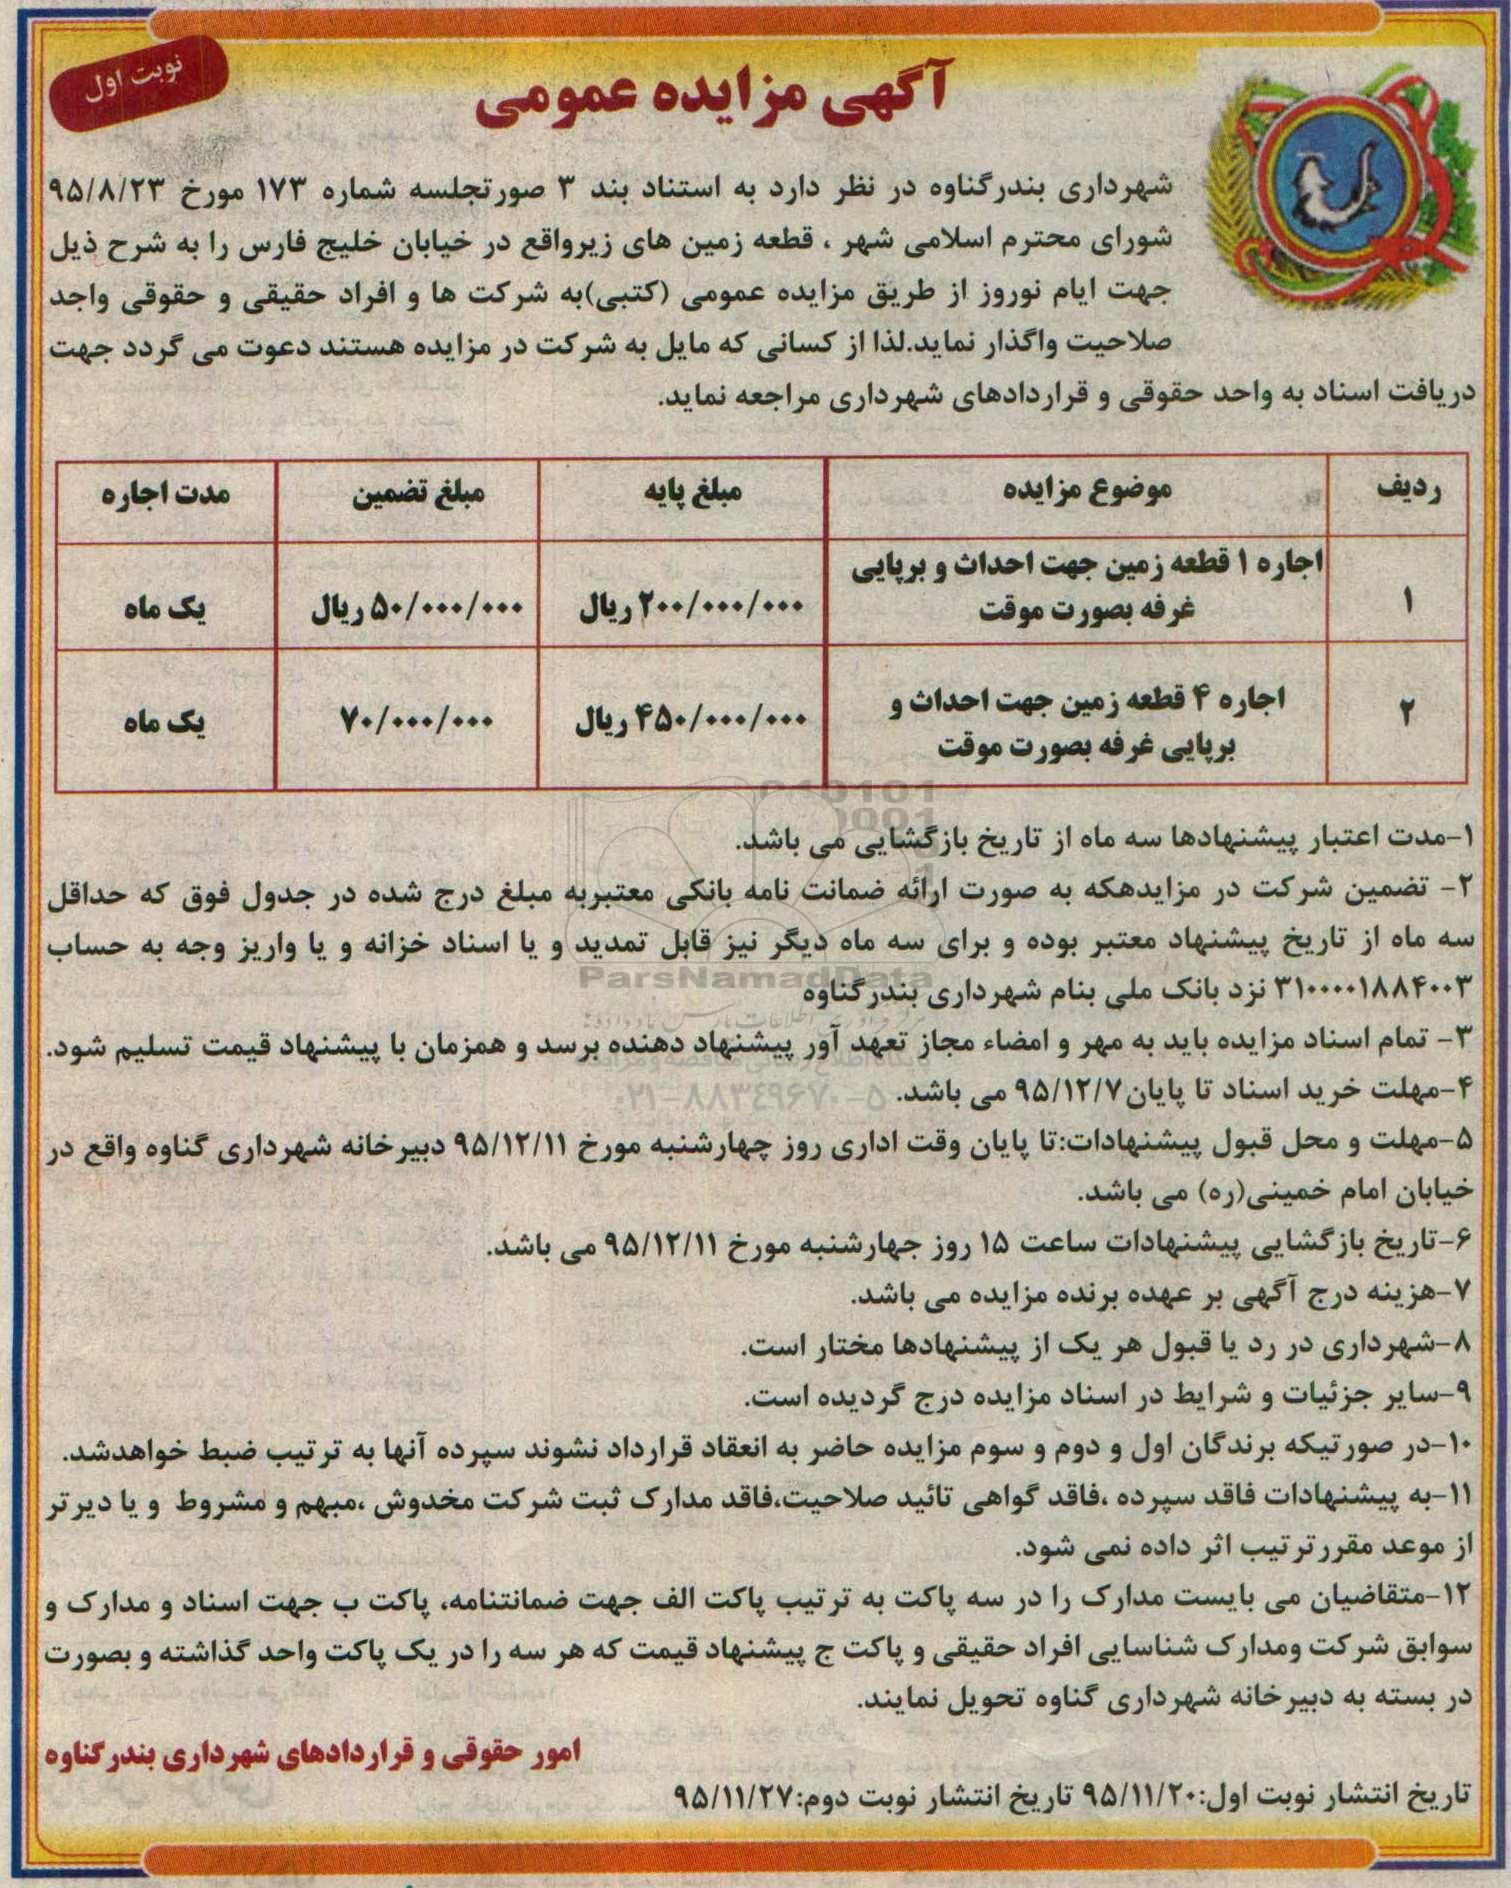 نوبت اول
آگهی مزایده عمومی
شهرداری بندرگناوه در نظر دارد به استناد بند ۳ صورتجلسه شماره ۱۷۳ مورخ ۹۵/۸/۲۳
شورای محترم اسلامی شهر ، قطعه زمین های زیرواقع در خیابان خلیج فارس را به شرح ذیل
جهت ایام نوروز از طریق مزایده عمومی (کتبی)به شرکت ها و افراد حقیقی و حقوقی واجد
صلاحیت واگذار نماید.لذا از کسانی که مایل به شرکت در مزایده هستند دعوت می گردد جهت
دریافت اسناد به واحد حقوقی و قراردادهای شهرداری مراجعه نماید.
ردیف موضوع مزایده مبلغ پایه مبلغ تضمین مدت اجاره
۱ اجاره ۱ قطعه زمین جهت احداث و برپایی
غرفه بصورت موقت ۲۰۰/۰۰۰/۰۰۰ ریال ۵۰/۰۰۰/۰۰۰ ریال یک ماه
۲ اجاره ۴ قطعه زمین جهت احداث و
برپایی غرفه بصورت موقت ۴۵۰/۰۰۰/۰۰۰ ریال ۷۰/۰۰۰/۰۰۰ یک ماه
۱-مدت اعتبار پیشنهادها سه ماه از تاریخ بازگشایی می باشد.
۲- تضمین شرکت در مزایدهکه به صورت ارائه ضمانت نامه بانکی معتبربه مبلغ درج شده در جدول فوق که حداقل
سه ماه از تاریخ پیشنهاد معتبر بوده و برای سه ماه دیگر نیز قابل تمدید و یا اسناد خزانه و یا واریز وجه به حساب
۳۱۰۰۰۰۱۸۸۴۰۰۳ نزد بانک ملی بنام شهرداری بندرگناوه
۳- تمام اسناد مزایده باید به مهر و امضاء مجاز تعهد آور پیشنهاد دهنده برسد و همزمان با پیشنهاد قیمت تسلیم شود.
۴-مهلت خرید اسناد تا پایان۹۵/۱۲/۷ می باشد.
۵-مهلت و محل قبول پیشنهادات:تا پایان وقت اداری روز چهارشنبه مورخ ۹۵/۱۲/۱۱ دبیرخانه شهرداری گناوه واقع در
خیابان امام خمینی(ره) می باشد.
۶-تاریخ بازگشایی پیشنهادات ساعت ۱۵ روز چهارشنبه مورخ ۹۵/۱۲/۱۱ می باشد.
۷-هزینه درج آگهی بر عهده برنده مزایده می باشد.
۸-شهرداری در رد یا قبول هر یک از پیشنهادها مختار است.
۹-سایر جزئیات و شرایط در اسناد مزایده درج گردیده است.
۱۰-در صورتیکه برندگان اول و دوم و سوم مزایده حاضر به انعقاد قرارداد نشوند سپرده آنها به ترتیب ضبط خواهدشد.
۱۱-به پیشنهادات فاقد سپرده ،فاقد گواهی تائید صلاحیت،فاقد مدارک ثبت شرکت مخدوش ،مبهم و مشروط و یا دیرتر
از موعد مقررترتیب اثر داده نمی شود.
۱۲-متقاضیان می بایست مدارک را در سه پاکت به ترتیب پاکت الف جهت ضمانتنامه، پاکت ب جهت اسناد و مدارک و
سوابق شرکت ومدارک شناسایی افراد حقیقی و پاکت ج پیشنهاد قیمت که هر سه را در یک پاکت واحد گذاشته و بصورت
در بسته به دبیرخانه شهرداری گناوه تحویل نمایند.
امور حقوقی و قراردادهای شهرداری بندرگناوه
تاریخ انتشار نوبت اول:۹۵/۱۱/۲۰ تاریخ انتشار نوبت دوم:۹۵/۱۱/۲۷
ParsNamadData
۰۲۱-۸۸۳۴۹۶۷۰-۵